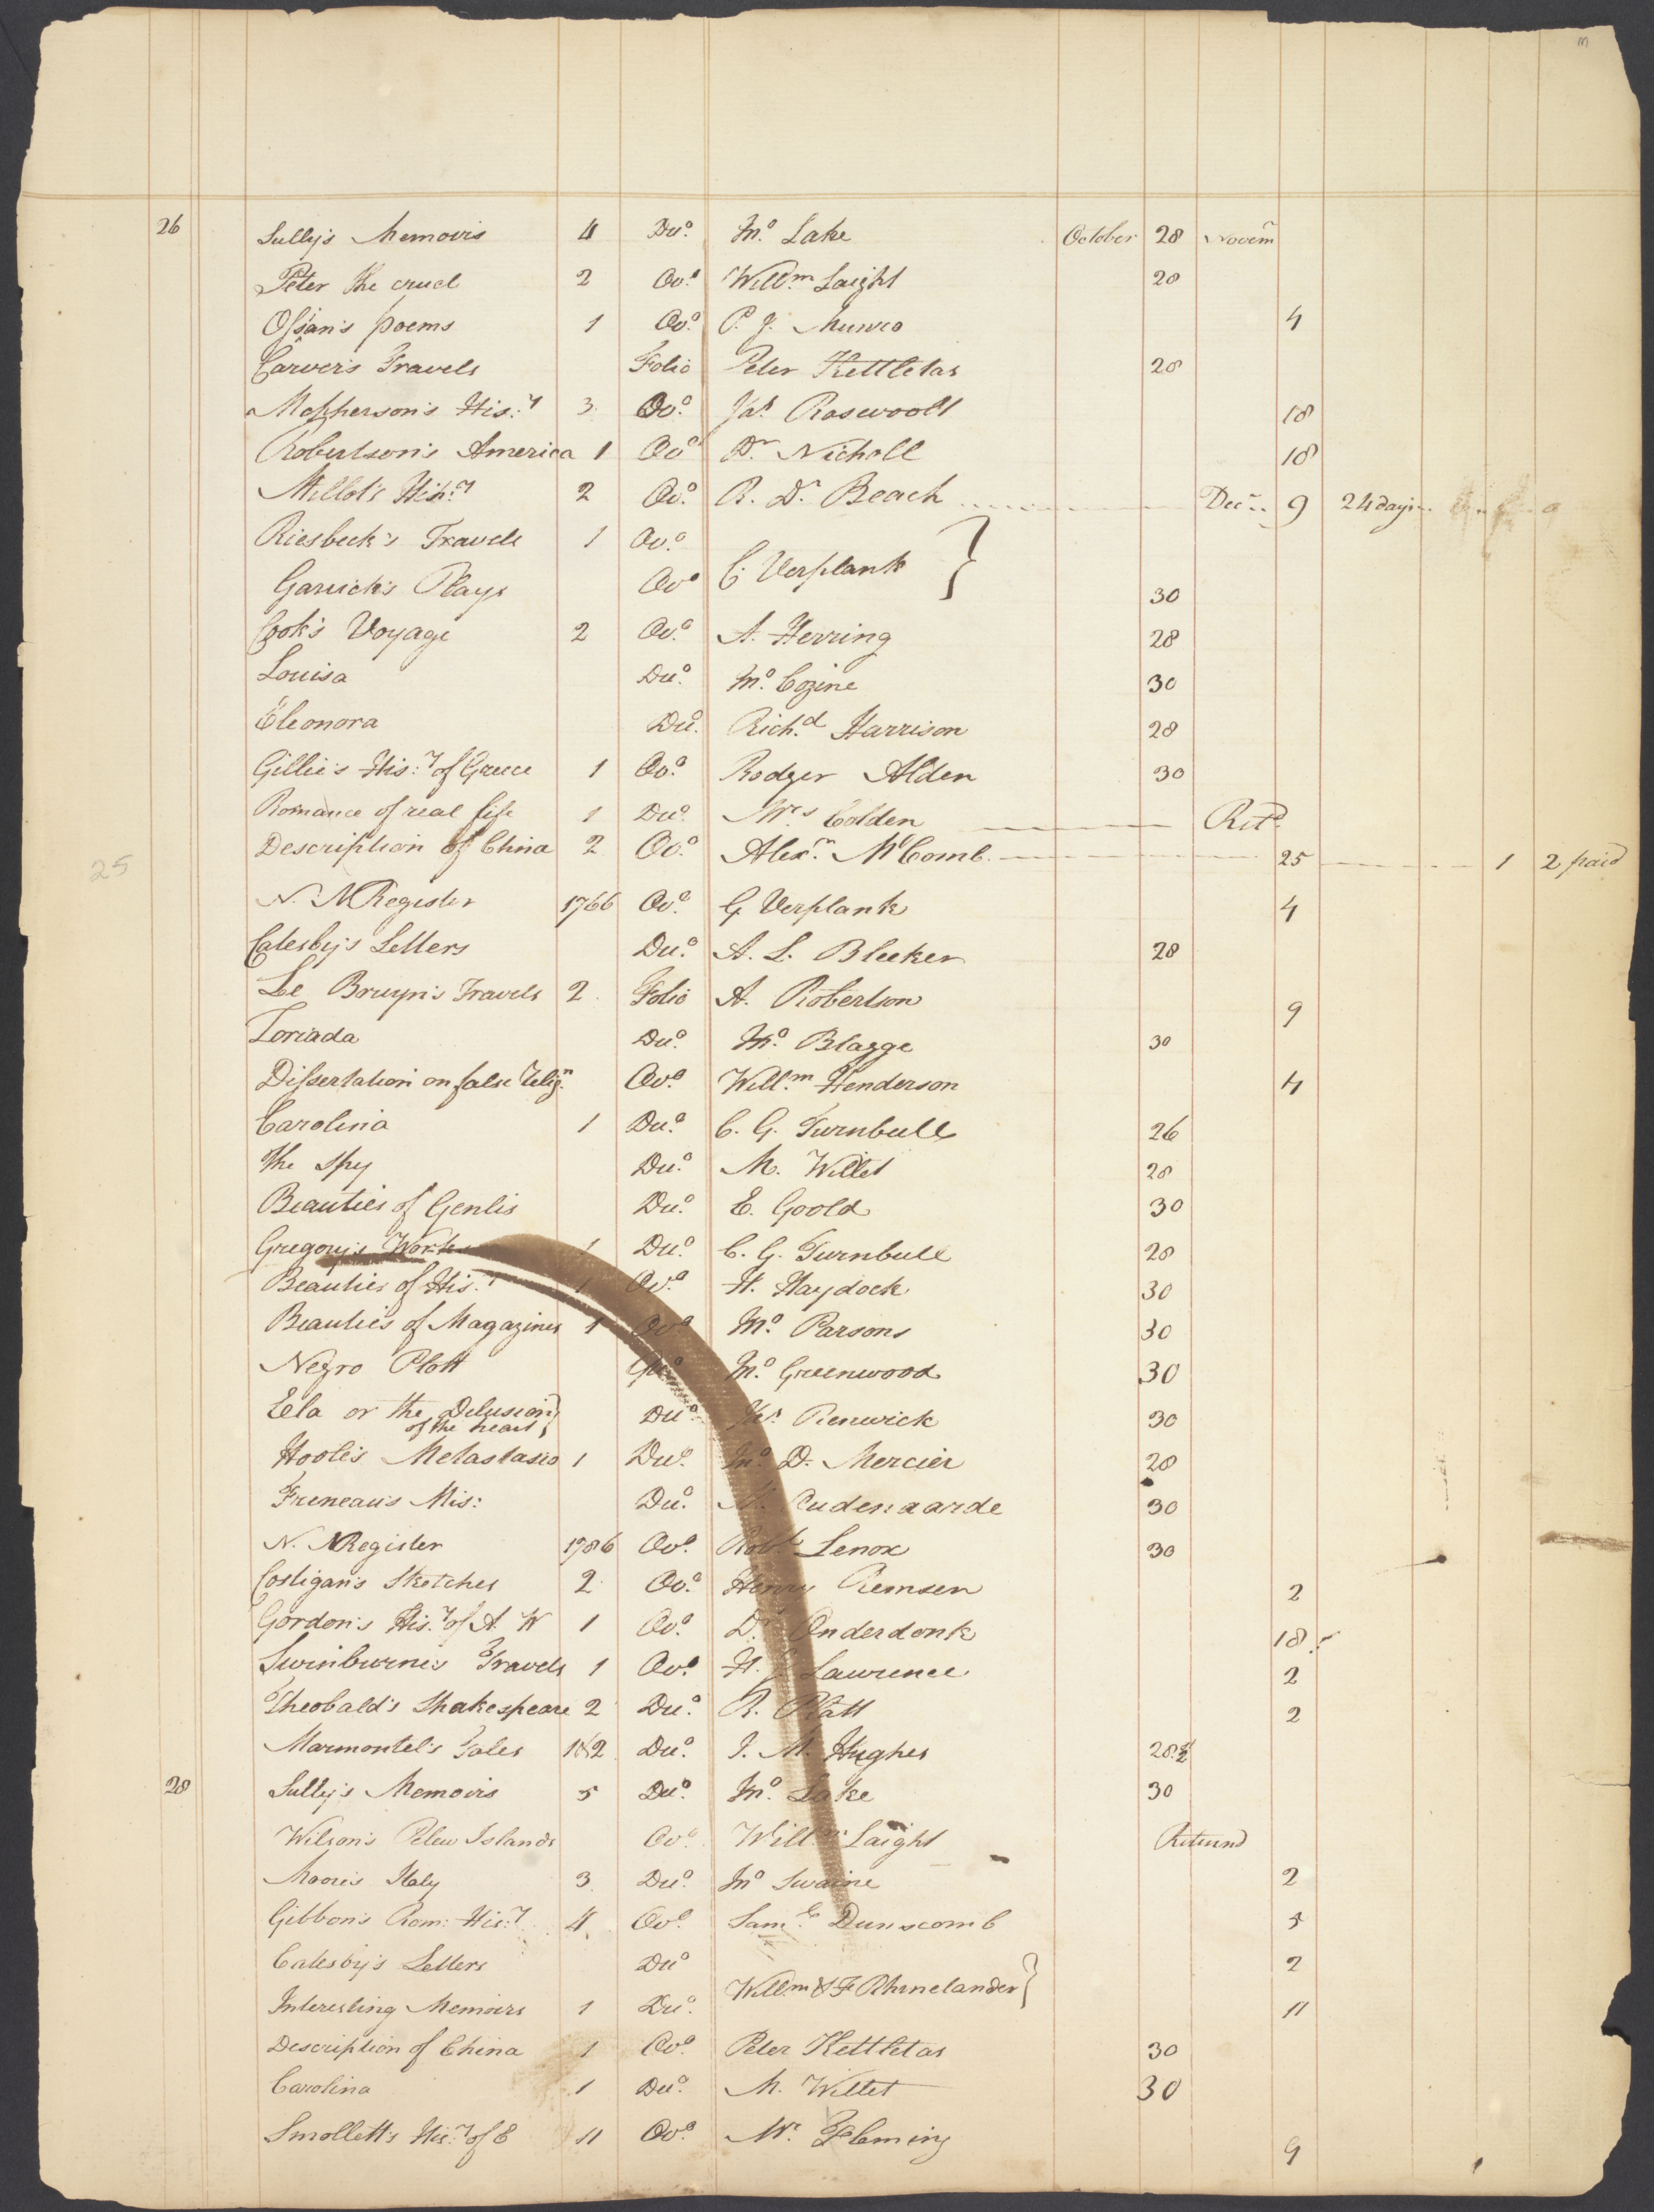 26 Sully's Memoirs 4 Duo. Jno. Lake October 28 Novem
Peter the cruel 2 Ovo. Willm. Laight 28
Ossian's poems 1 Ovo. P. J. Munro 4
Carver's Travels Folio Peter Kettletas 28
McPherson's His:y 3 Ovo. Jas. Roosevelt 18
Robertson's America 1 Ovo Dr. Nicholl 18
Millot's His:y 2 Ovo. R. Dr. Beach Decr. 9 24 days
Riesbeck's Travels 1 Ovo. }
Garrick's Plays Ovo G. Verplank } 30
Cook's Voyage 2 Ovo. A. Herring 28
Louisa Duo. Jno. Cozine 30
Eleonora Duo. Richd. Harrison 28
Gillie's His:y of Greece 1 Ovo. Rodger Alden 30
Romance of real life 1 Duo. Mrs Colden Retd.
Description of China 2 Ovo. Alexr. McComb. 25 1 2 paid
25
N. A Register 1766 Ovo. G Verplank 4
Catesby's Letters Duo. A. L. Bleeker 28
Le Bruyn's Travels 2 Folio A. Robertson 9
Toriada Duo. Jno. Blagge 30
Dissertation on false relign. Ovo. Willm. Henderson 4
Carolina 1 Duo. C. G. Turnbull 26
The Spy Duo. M. Willet 28
Beauties of Genlis Duo. E. Goold 30
Gregory's Works 1 Duo. C. G. Turnbull 28
Beauties of His:y 1 Ovo. H. Haydock 30
Beauties of Magazines 1 Ovo Jno. Parsons 30
Negro Plott Jno. Greenwood 30
Ela or the Delusion } Duo. Jas. Renwick 30
of the heart }
Hoole's Metastasio 1 Duo. Jno. D. Mercier 28
Freneau's Mis: Duo. Oudenaarde 30
N. A Register 1786 Ovo. Robt. Lenox 30
Costigan's Sketches 2 Ovo. Henry Remsen 2
Gordon's His:y of A. W 1 Ovo. Dr Onderdonk 18
Swinburne's Travels 1 Ovo. Lawrence 2
Theobald's Shakespeare 2 Duo. R. Platt 2
Marmontel's Tales 1&2 Duo. J. M. Hughes 28
28 Sully's Memoirs 5 Duo. Jno. Lake 30
Wilson's Pelew Islands Ovo. Willm. Laight Returnd
Moore's Italy 3 Duo. Jno Swaine 2
Gibbon's Rom: His:y 4 Ovo. Saml. Dunscomb 5
Catesby's Letters Duo 2
Willm & F Rhinelander }
Interesting Memoirs 1 Duo. 11
Description of China 1 Ovo. Peter Kettletas 30
Carolina 1 Duo. M. Willet 30
Smollett's His:y of E 11 Ovo. Mr. Fleming 9